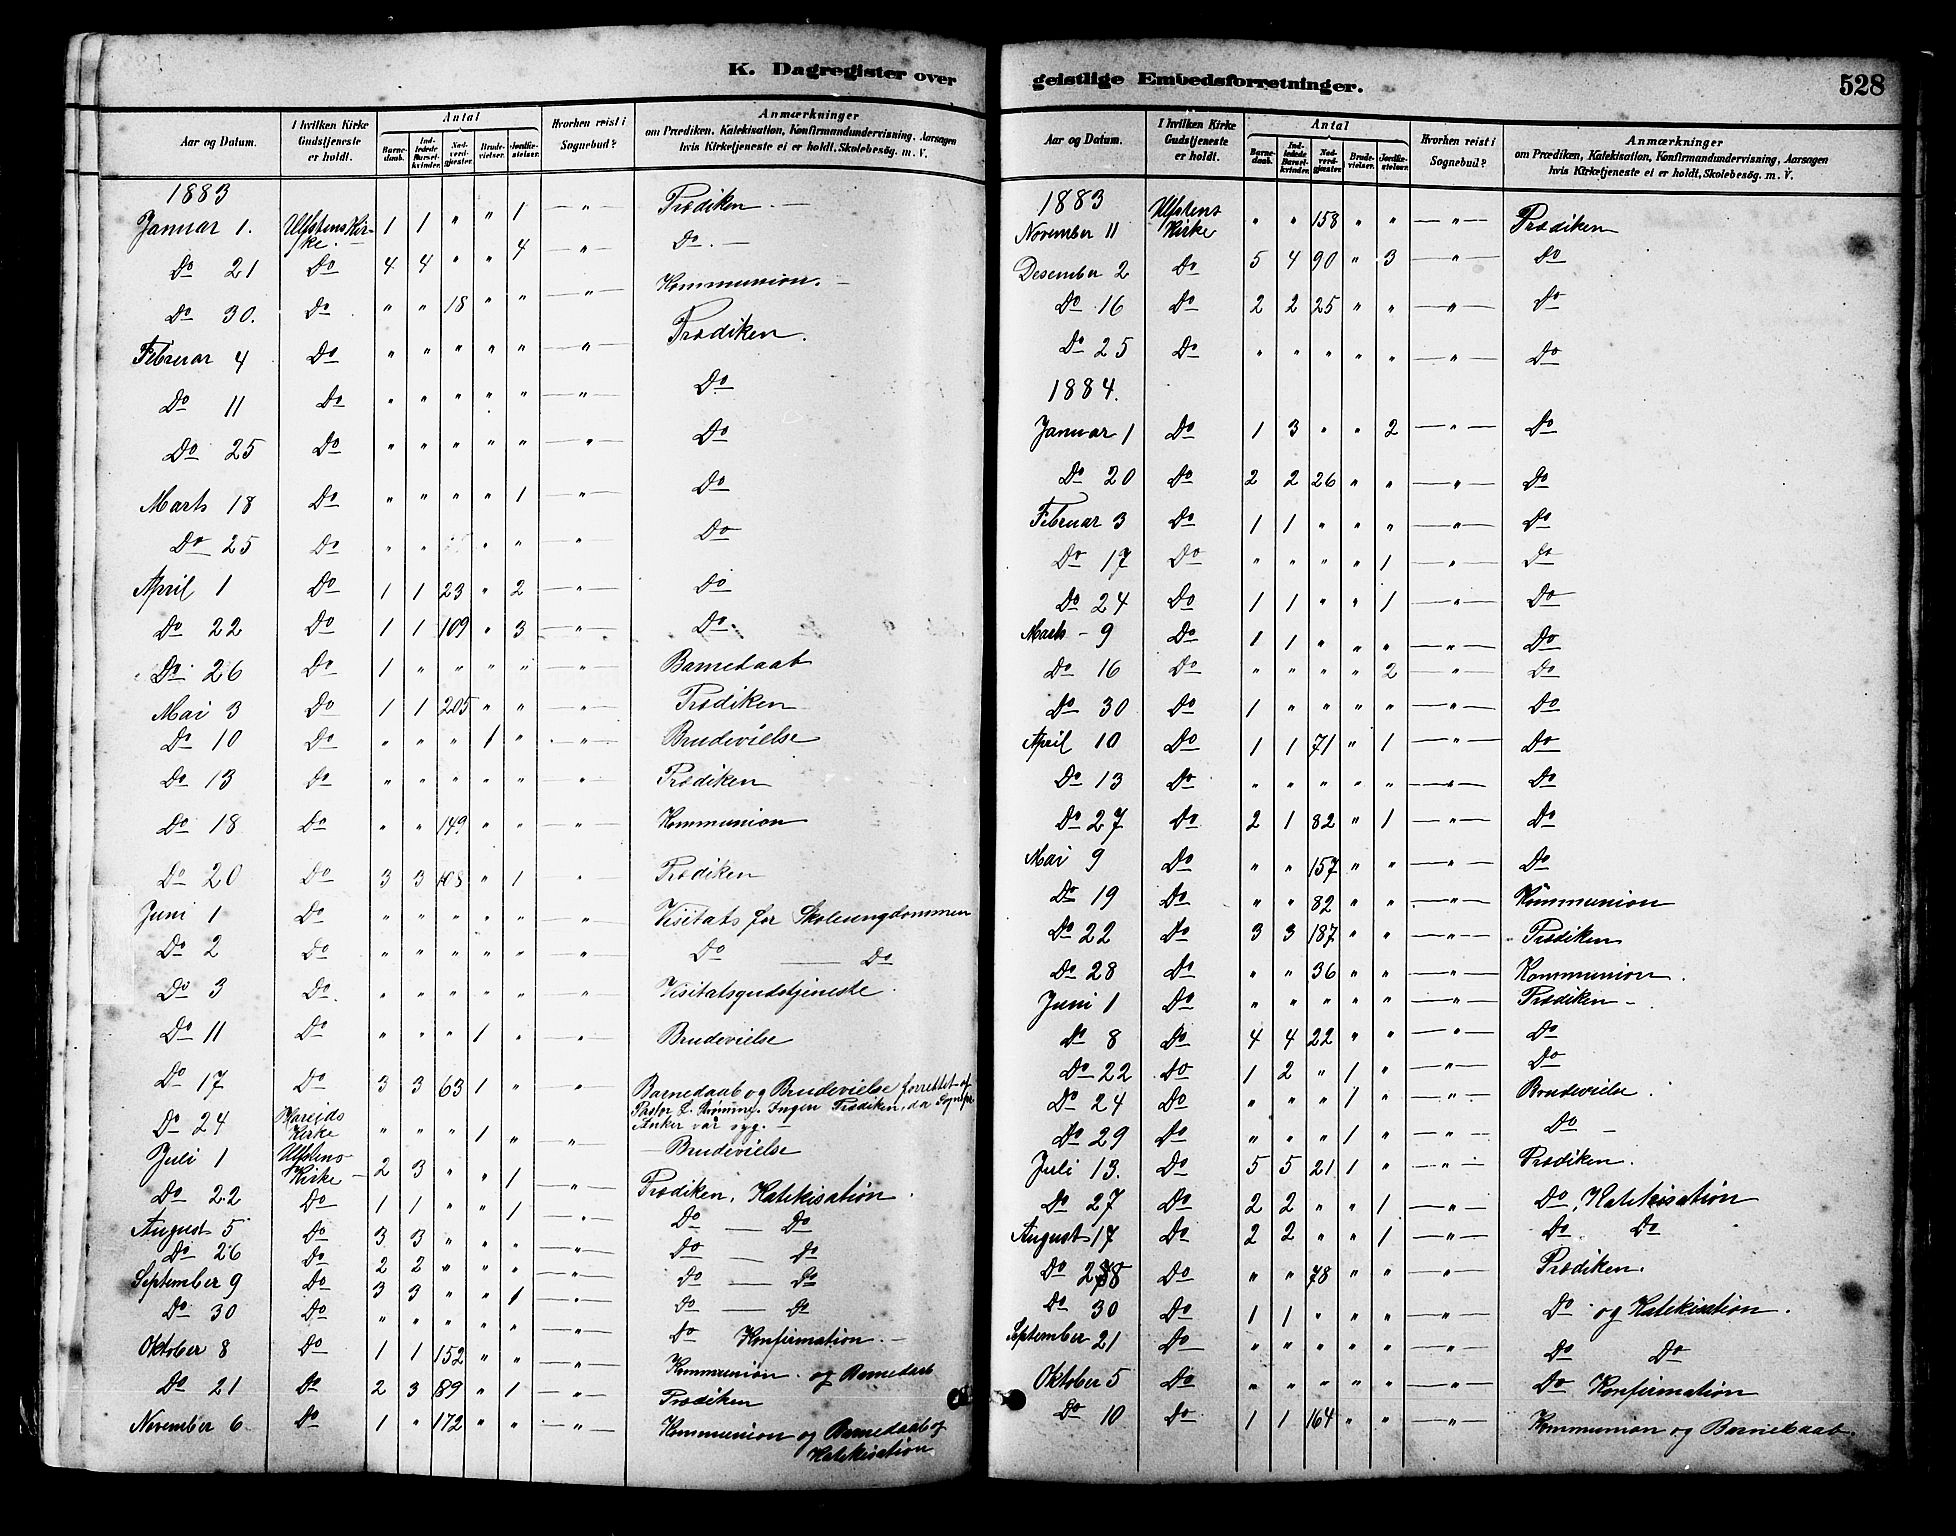 K. Dagregister over
Aar og Datum. | I hvilken Kirke Gudstjeneste er holdt. | Antal | Barnedaab. | Indledede Barselkvinder. | Nadverdgjester. | Brudevielser. | Jordfæstelser. | Hvorhen reist i Sognebud? | Anmærkninger om Prædiken, Katekisation, Konfirmandundervisning, Aarsagen hvis Kirketjeneste ei er holdt, Skolebesøg. m. V.
1883
Januar 1. | Ulfstens Kirke. | 1 | 1 | " | " | 1 | — " — | Prædiken. —
Do 21 | Do | 4 | 4 | " | " | 4 | " | Do. —
Do 30. | Do | " | " | 18 | " | " | — " — | Kommunion. —
Februar 4 | Do | " | " | " | " | " | — " — | Prædiken.
Do 11 | Do | " | " | " | " | " | — " — | Do
Do 25 | Do | " | " | " | " | " | — " — | Do
Marts 18 | Do | " | " | " | " | 1 | — " — | Do
Do 25 | Do | " | " | | " | " | — " — | Do
April 1 | Do | 1 | 1 | 23 | " | 2 | — " — | Do
Do 22 | Do | 1 | 1 | 109 | " | 3 | — " — | Do
Do 26 | Do | 1 | " | " | " | " | — " — | Barnedaab
Mai 3 | Do | 1 | 1 | 205 | " | " | — " — | Prædiken
Do 10 | Do | " | " | " | 1 | " | — " — | Brudevielse
Do 13 | Do | " | " | " | " | " | — " — | Prædiken
Do 18 | Do | " | " | 149 | " | " | — " — | Kommunion
Do 20 | Do | 3 | 3 | 108 | " | 1 | " | Prædiken
Juni 1 | Do | " | " | " | " | " | — " — | Visitats for Skoleungdommen
Do 2 | Do | " | " | " | " | " | — " — | Do — Do
Do 3 | Do. | " | " | " | " | " | — " — | Visitatsgudstjeneste.
Do 11 | Do | " | " | " | 1 | " | — " — | Brudevielse
Do 17 | Do | 3 | 3 | 63 | 1 | " | " | Barnedaab og Brudevielse forrettet af
Pastor L. Ingen Prædiken, da Sognepr
Anker var syg. —
Do 24 | Hareids Kirke | " | " | " | 1 | " | — " — | — Brudevielse
Juli 1 | Ulfstens Kirke | 2 | 3 | " | " | 1 | — " — | Prædiken, Katekisation.
Do 22 | Do | 1 | 1 | " | " | 1 | — " — | Do — Do
August 5 | Do | 3 | 3 | " | " | " | — " — | Do — Do
Do 26 | Do | 2 | 2 | " | " | " | — " — | Do — Do
September 9 | Do | 3 | 3 | " | " | 1 | — " — | Do — Do
Do 30 | Do | " | " | " | " | " | — " — | Do Konfirmation. —
Oktober 8 | Do | 1 | 1 | 152 | " | " | — " — | Kommunion. og Barnedaab
Do 21 | Do | 2 | 3 | 89 | " | 1 | — " — | Prædiken
November 6 | Do | 1 | " | 172 | " | " | — " — | Kommunion og Barnedaab og
Katekisation
geistlige Embedsforretninger. 528
Aar og Datum. | I hvilken Kirke Gudstjeneste er holdt. | Antal | Barnedaab. | Indledede Barselkvinder. | Nadverdgjester. | Brudevielser. | Jordfæstelser. | Hvorhen reist i Sognebud? | Anmærkninger om Prædiken, Katekisation, Konfirmandundervisning, Aarsagen hvis Kirketjeneste ei er holdt, Skolebesøg. m. V.
1883
November 11 | Ulfstens Kirke | " | " | 158 | " | " | — " — | Prædiken
Desember 2 | Do | 5 | 4 | 90 | " | 3 | — " — | Do
Do 16 | Do | 2 | 2 | 25 | " | " | — " — | Do
Do 25 | Do | " | " | " | " | " | — " — | Do
1884.
Januar 1 | Do | 1 | 3 | " | " | 2 | — " — | Do
Do 20 | Do | 2 | 2 | 26 | " | " | — " — | Do
Februar 3 | Do | 1 | 1 | " | " | " | — " — | Do
Do 17 | Do | " | " | " | " | 1 | — " — | Do
Do 24 | Do | 1 | 1 | " | " | 1 | — " — | Do
Marts - 9 | Do | 1 | 1 | " | " | " | — " — | Do
Do 16 | Do | " | " | " | " | 2 | — " — | Do
Do 30 | Do | 1 | " | " | " | " | — " — | Do
April 10 | Do | 1 | 1 | 71 | " | 1 | — " — | Do
Do 13 | Do | " | " | " | " | " | — " — | Do
Do 27 | Do | 2 | 1 | 82 | " | 1 | — " — | Do
Mai 9 | Do | " | " | 157 | " | " | — " — | Do
Do 19 | Do | " | " | 82 | " | " | — " — | Kommunion
Do 22 | Do | 3 | 3 | 187 | " | " | — " — | Prædiken
Do 28 | Do | " | " | 36 | " | " | — " — | Kommunion.
Juni 1 | Do | " | " | " | " | " | — " — | Prædiken -
Do 8 | Do | 4 | 4 | 22 | " | " | — " — | Do
Do 22 | Do | 1 | 2 | " | 1 | " | — " — | Do
Do 24 | Do | " | " | " | 1 | " | — " — | Brudevielse.
Do 29 | Do | " | " | " | 1 | " | — " — | Do —
Juli 13. | Do | 5 | 5 | 21 | 1 | " | — " — | Prædiken.
Do 27 | Do | 2 | 2 | " | " | 1 | — " — | Do, Katekisation
August 17 | Do | 2 | 2 | " | " | 1 | — " — | Do Do
Do 28 | Do | " | " | 78 | " | " | — " — | Prædiken.
Do 30 | Do | 1 | 1 | " | " | " | — " — | Do og Katekisation.
September 21 | Do | " | " | " | " | " | — " — | Do Do
Oktober 5 | Do | " | " | " | " | " | — " — | Do Konfirmation
Do 10 | Do | 1 | 1 | 164 | " | " | — " — | Kommunion og Barnedaab.